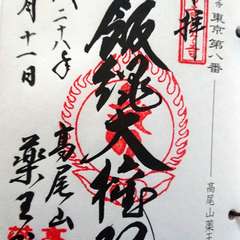 東京第八番 高尾山薬王
拝
飯縄大権
二十八年
月十一日
高尾山
薬王